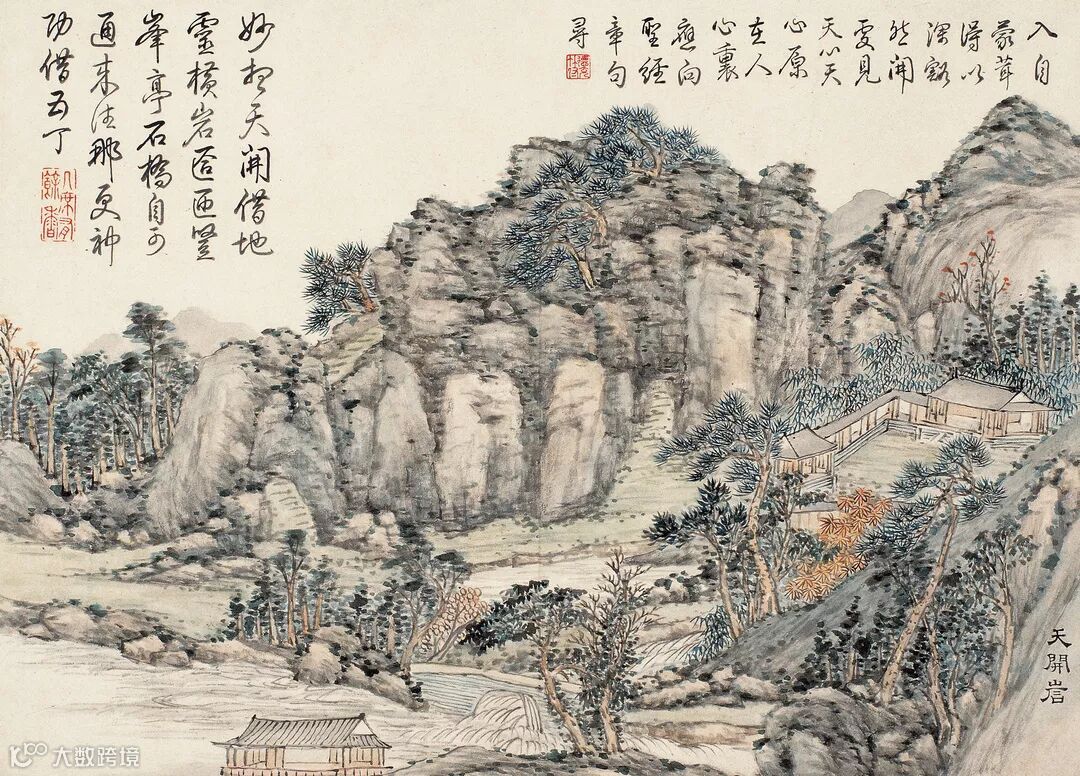 入自
蒙茸
得以
深豁
然開
處見
天心天
心原
在人
心裏
應向
聖經
章句
尋
妙相天開借地
靈橫岩匼匝豎
峯亭石橋自可
通來往那更神
功借五丁
天開岩
大数跨境